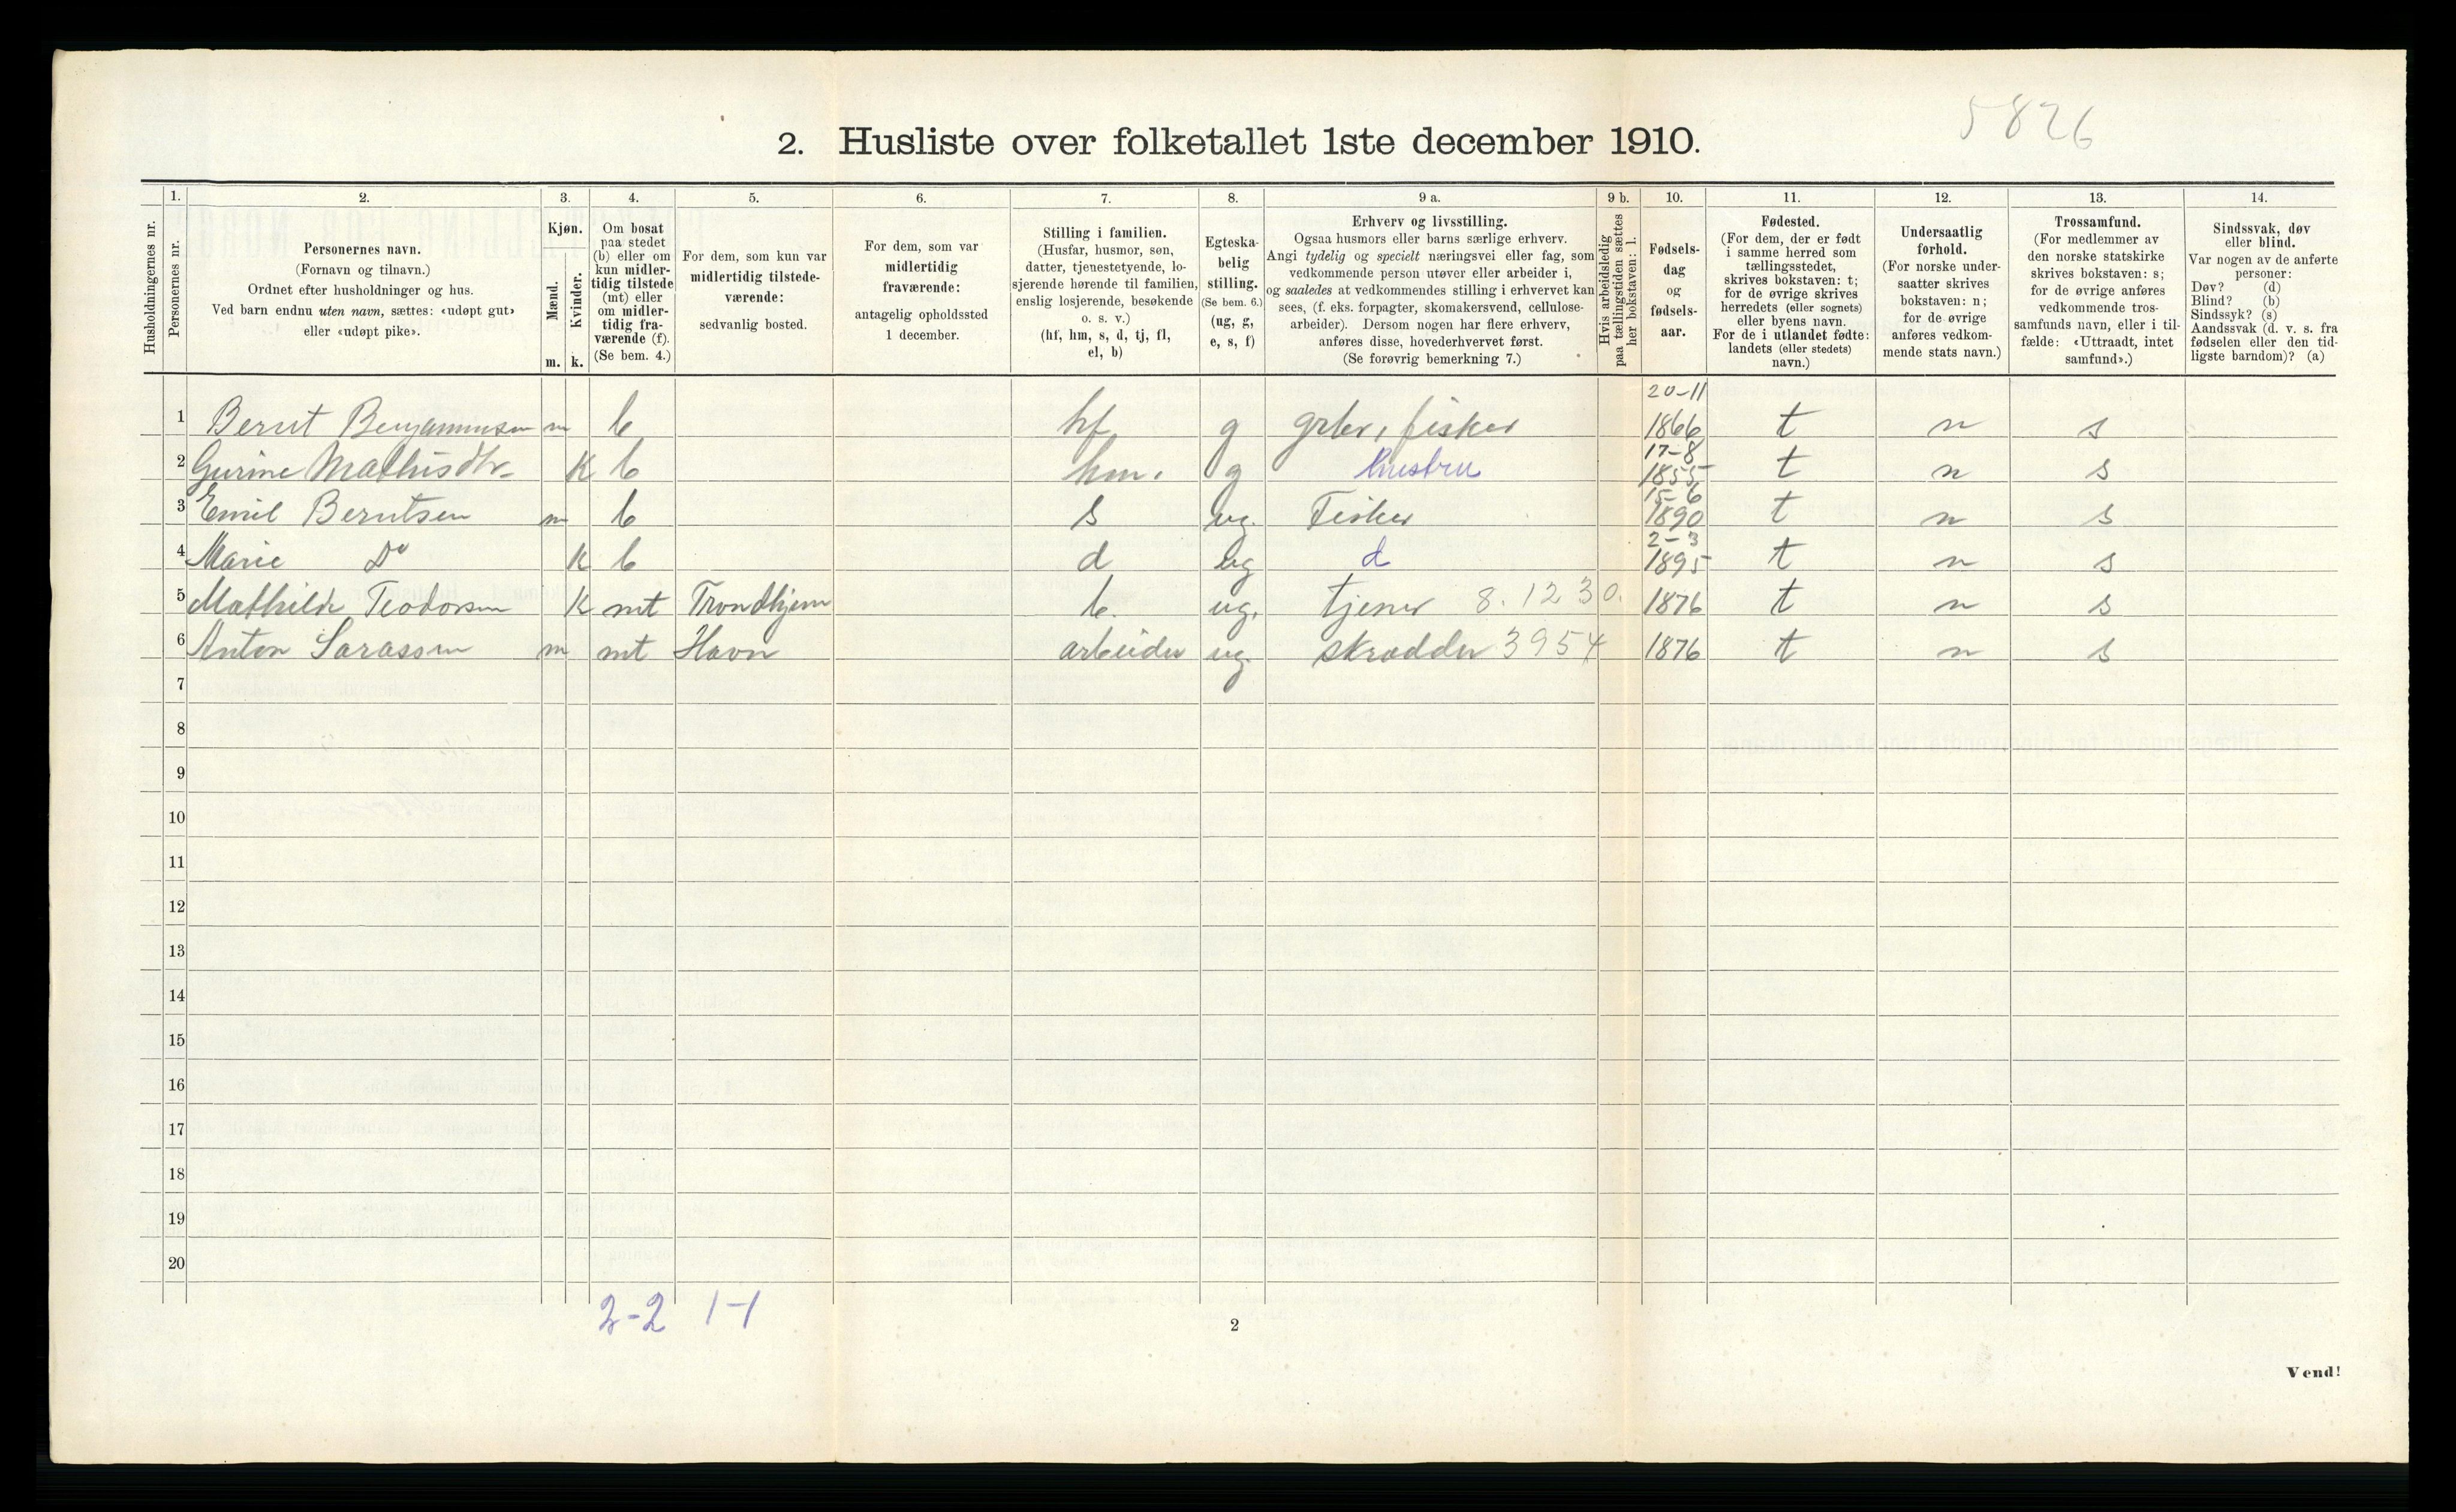 5826
2. Husliste over folketallet 1ste december 1910.
1. 2. 3. 4. 5. 6. 7. 8. 9 a. 9 b. 10. 11. 12. 13. 14.
Husholdningernes nr.
Personernes nr.
Personernes navn.
(Fornavn og tilnavn.)
Ordnet efter husholdninger og hus.
Ved barn endnu uten navn, sættes: «udøpt gut»
eller «udøpt pike».
Kjøn.
Mænd.
Kvinder.
m. k.
Om bosat
paa stedet
(b) eller om
kun midler-
tidig tilstede
(mt) eller
om midler-
tidig fra-
værende (f).
(Se bem. 4.)
For dem, som kun var
midlertidig tilstede-
værende:
sedvanlig bosted.
For dem, som var
midlertidig
fraværende:
antagelig opholdssted
1 december.
Stilling i familien.
(Husfar, husmor, søn,
datter, tjenestetyende, lo-
sjerende hørende til familien,
enslig losjerende, besøkende
o. s. v.)
(hf, hm, s, d, tj, fl,
el, b)
Egteska-
belig
stilling.
(Se bem. 6.)
(ug, g,
e, s, f)
Erhverv og livsstilling.
Ogsaa husmors eller barns særlige erhverv.
Angi tydelig og specielt næringsvei eller fag, som
vedkommende person utøver eller arbeider i,
og saaledes at vedkommendes stilling i erhvervet kan
sees, (f. eks. forpagter, skomakersvend, cellulose-
arbeider). Dersom nogen har flere erhverv,
anføres disse, hovederhvervet først.
(Se forøvrig bemerkning 7.)
Hvis arbeidsledig
paa tællingstiden sættes
her bokstaven: l.
Fødsels-
dag
og
fødsels-
aar.
Fødested.
(For dem, der er født
i samme herred som
tællingsstedet,
skrives bokstaven: t;
for de øvrige skrives
herredets (eller sognets)
eller byens navn.
For de i utlandet fødte:
landets (eller stedets)
navn.)
Undersaatlig
forhold.
(For norske under-
saatter skrives
bokstaven: n;
for de øvrige
anføres vedkom-
mende stats navn.)
Trossamfund.
(For medlemmer av
den norske statskirke
skrives bokstaven: s;
for de øvrige anføres
vedkommende tros-
samfunds navn, eller i til-
fælde: «Uttraadt, intet
samfund».)
Sindssvak, døv
eller blind.
Var nogen av de anførte
personer:
Døv? (d)
Blind? (b)
Sindssyk? (s)
Aandssvak (d. v. s. fra
fødselen eller den tid-
ligste barndom)? (a)
1 Bernt Benjaminsen m b hf g grbr, fisker 20-11 1866 t n s
2 Gurine Mathisdtr k b hm. g hustru 17-8 1855 t n s
3 Emil Berntsen m b s ug. Fisker 15-6 1890 t n s
4 Marie Do k b d ug d 2-3 1895 t n s
5 Mathilde Teodorsen k mt Trondhjem b. ug. tjener 8.1230. 1876 t n s
6 Anton Sarassen m mt Havn arbeider ug. skrædder 3954 1876 t n s
7
8
9
10
11
12
13
14
15
16
17
18
19
20
2-2 1-1
2
Vend!